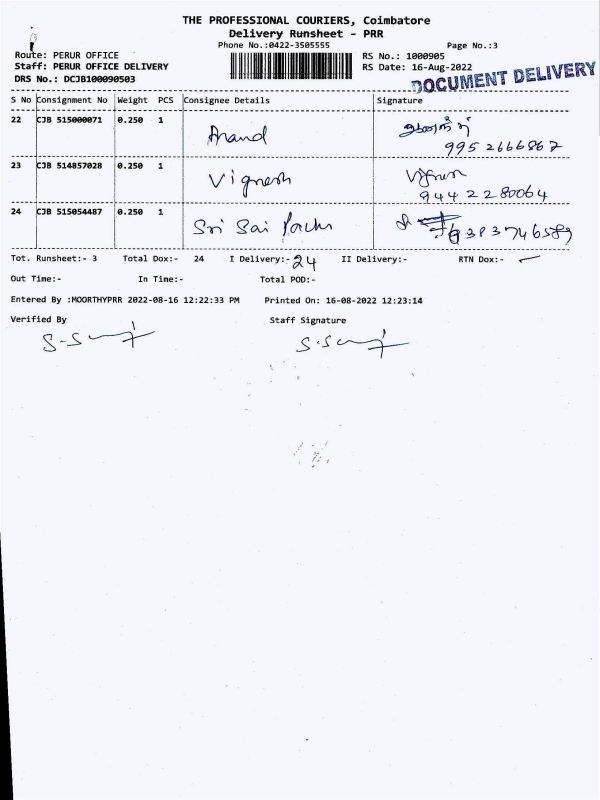 THE PROFESSIONAL COURIERS, Coimbatore
Delivery Runsheet - PRR
Phone No.:0422-3505555 Page No.:3
Route: PERUR OFFICE RS No.: 1000905
Staff: PERUR OFFICE DELIVERY RS Date: 16-Aug-2022
DRS No.: DCJB100090503
DOCUMENT DELIVERY
S No Consignment No Weight PCS Consignee Details Signature
22 CJB 515000071 0.250 1
Anand
9952666867
23 CJB 514857028 0.250 1
Vignesh Vignesh
9442280064
24 CJB 515054487 0.250 1
Sri Sai
9383746589
Tot. Runsheet:- 3 Total Dox:- 24 I Delivery:- 24 II Delivery:- RTN Dox:-
Out Time:- In Time:- Total POD:-
Entered By :MOORTHYPRR 2022-08-16 12:22:33 PM Printed On: 16-08-2022 12:23:14
Verified By Staff Signature